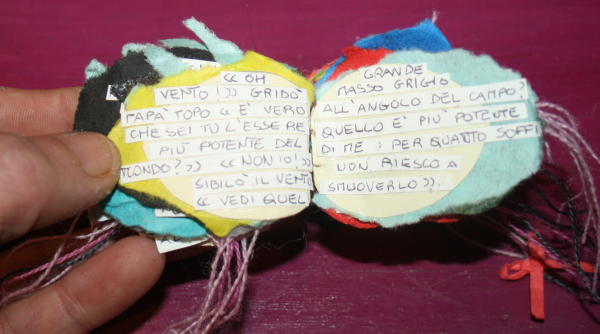 « OH
VENTO!» GRIDÒ
PAPÀ TOPO « È VERO
CHE SEI TU L'ESSERE
PIÙ POTENTE DEL
MONDO?» « NON IO!»
SIBILÒ IL VENTO
« VEDI QUEL
GRANDE
MASSO GRIGIO
ALL'ANGOLO DEL CAMPO?
QUELLO È PIÙ POTENTE
DI ME: PER QUANTO SOFFI
NON RIESCO A
SMUOVERLO».